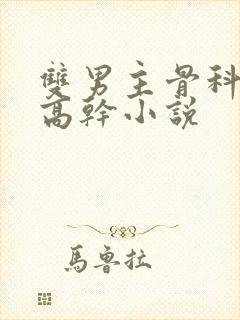 雙男主骨科
高幹小說
馬魯拉